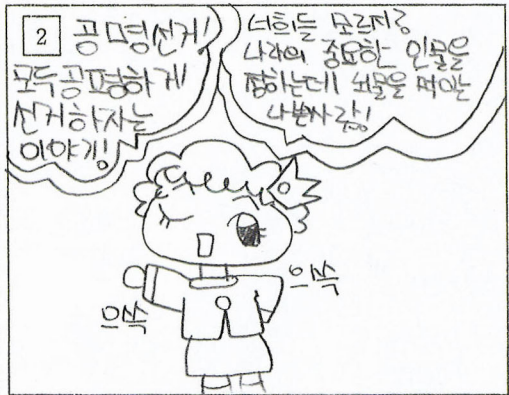 2
공명선거!
모두공평하게
선거하자는
이야기!
너희들 모르지?
나라의 중요한 인물을
정하는데 뇌물을 먹이는
나쁜사람!
으쓱
으쓱